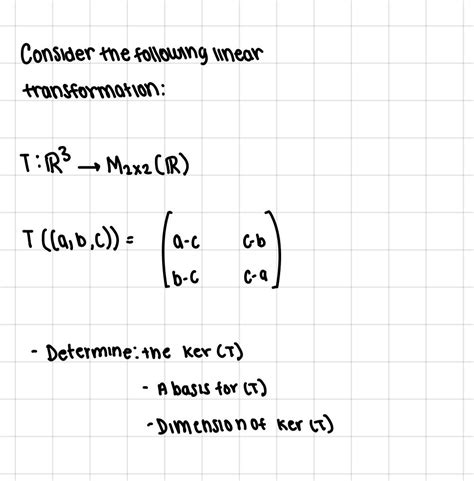 Consider the following linear
transformation:
T: ℝ³ → M₂ₓ₂(ℝ)
T((a,b,c)) = ( a-c c-b
b-c c-a )
- Determine: the ker(T)
- A basis for (T)
- Dimension of ker(T)